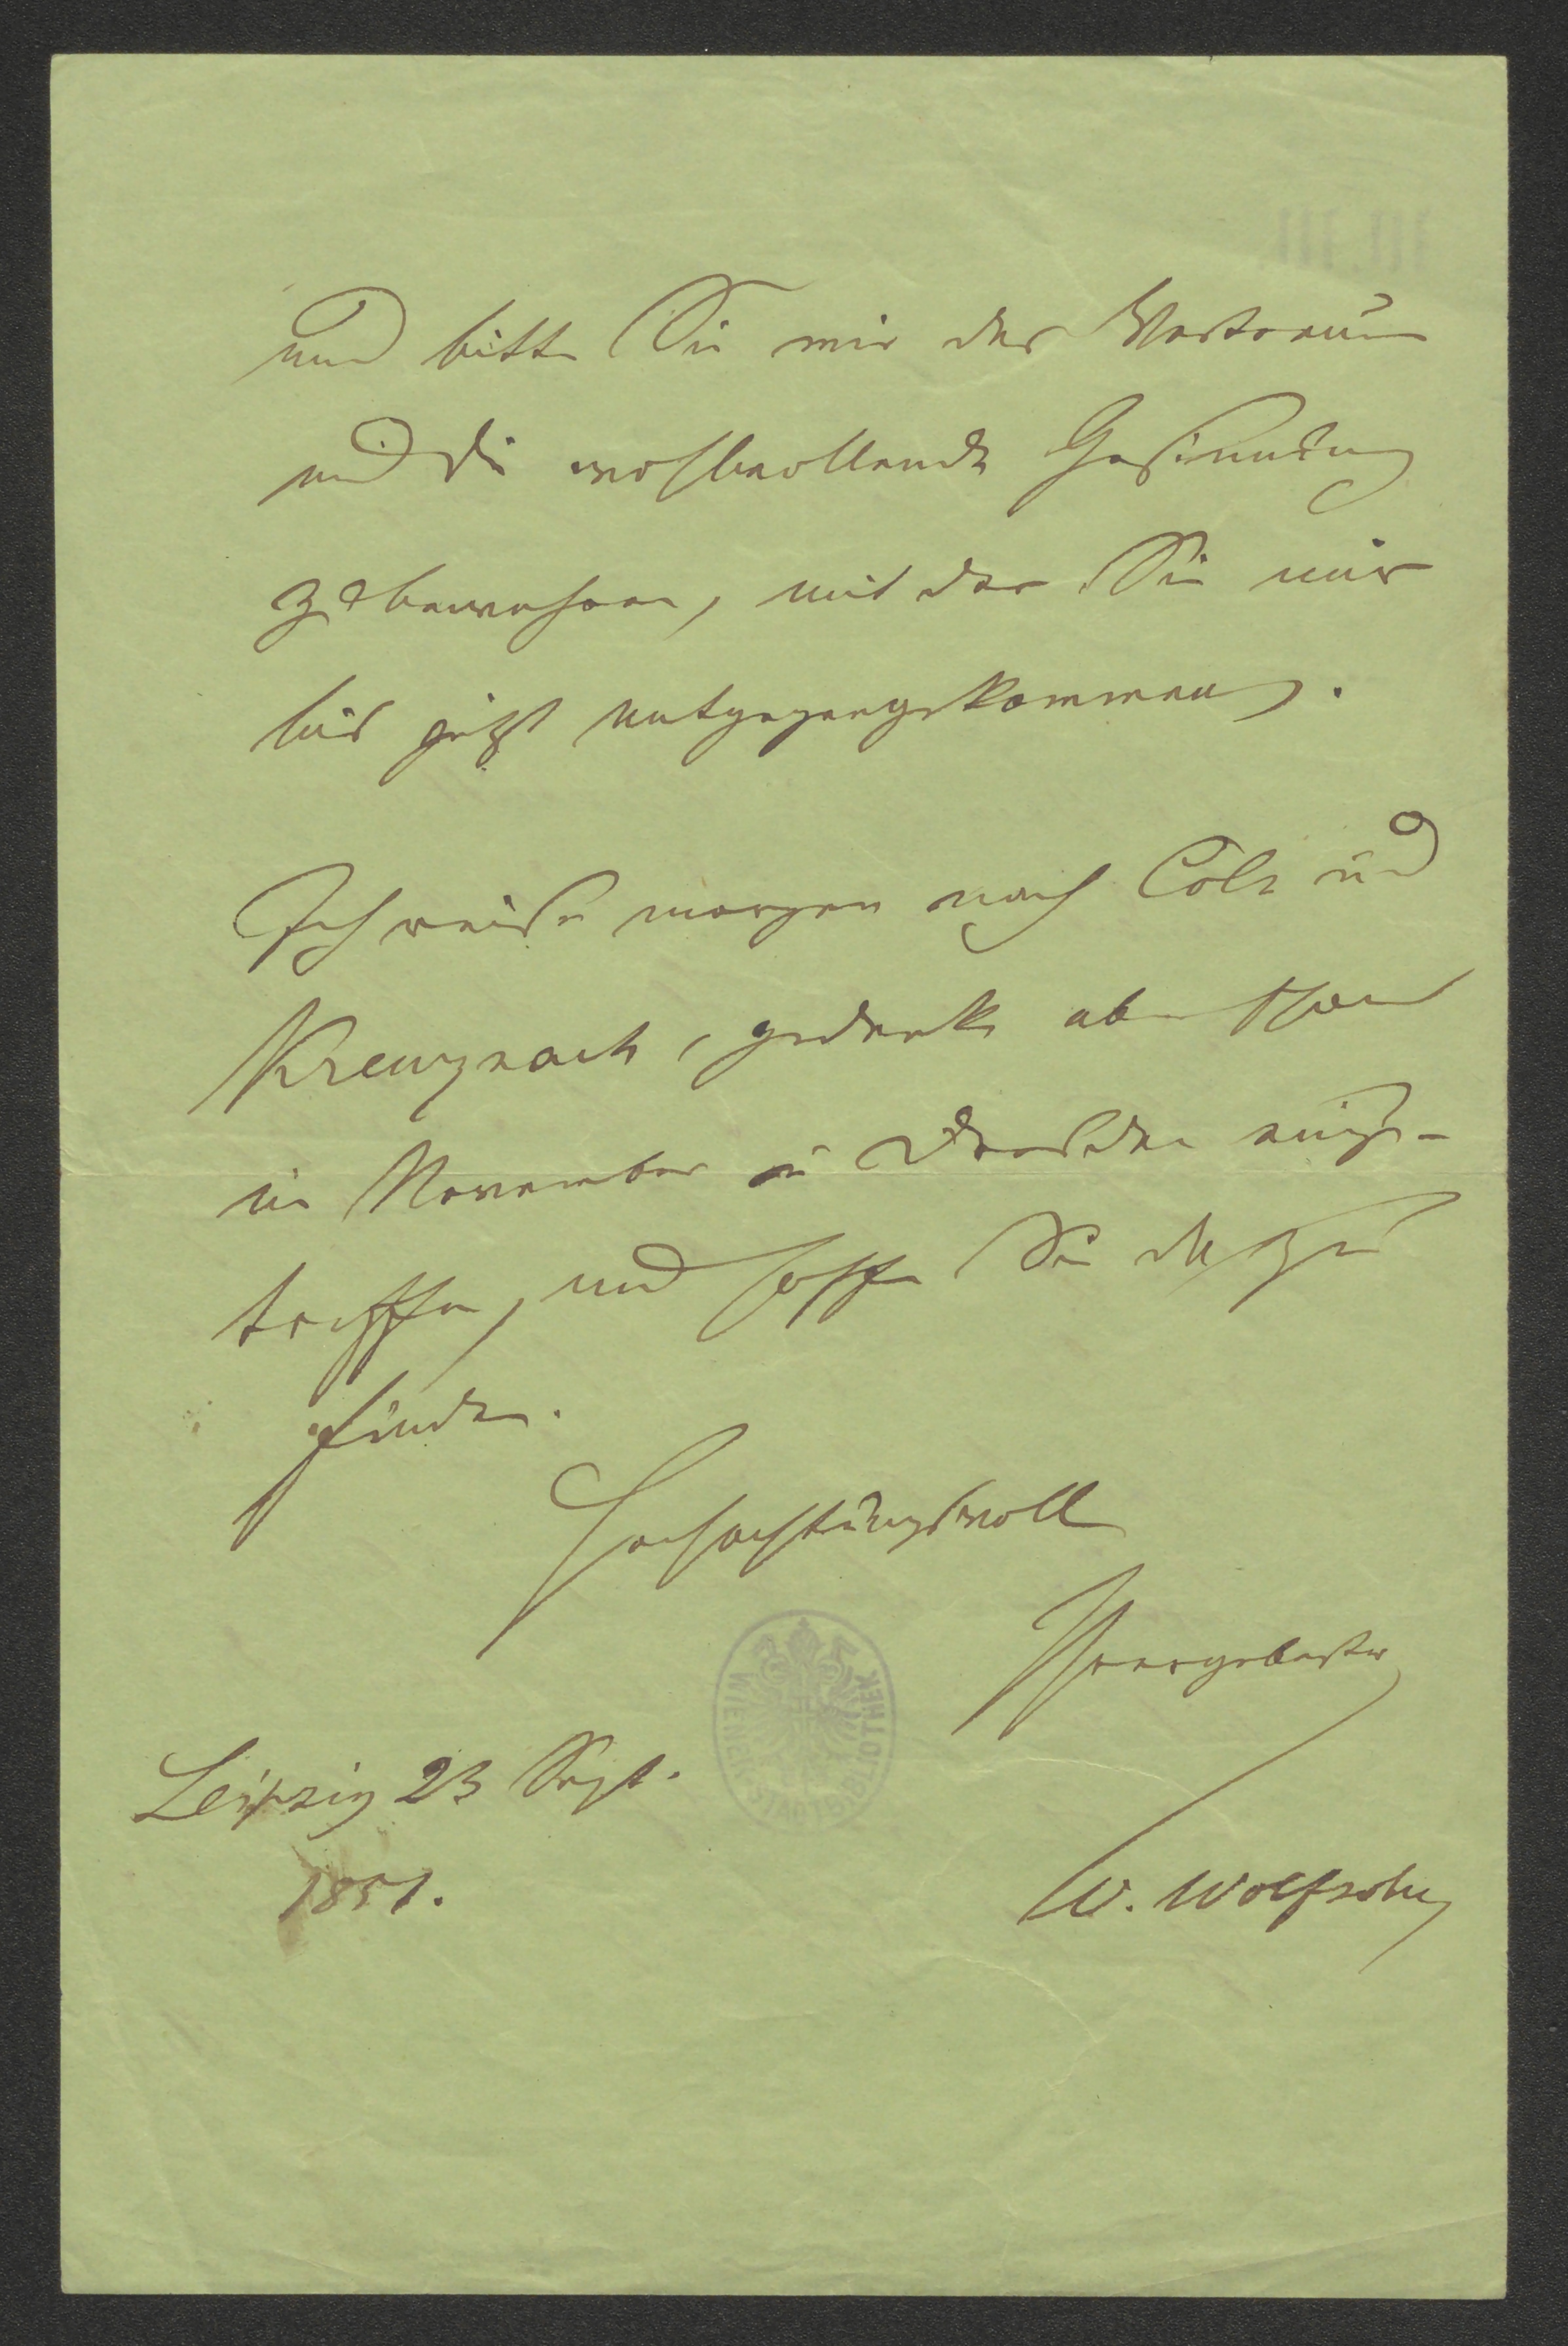 und bitte Sie mir das Vertrauen
und die wohlwollende Gesinnung
zu bewahren, mit der Sie mir
bis jetzt entgegengekommen.
Ich reise morgen nach Cöln und
Kreuznach, gedenke aber schon
im November in Dresden einzu-
treffen, und hoffe Sie da zu
finden.
Hochachtungsvoll
Ihr ergebenster
Leipzig 23 Sept.
1851.
W. Wolfsohn
WIENER STADTBIBLIOTHEK